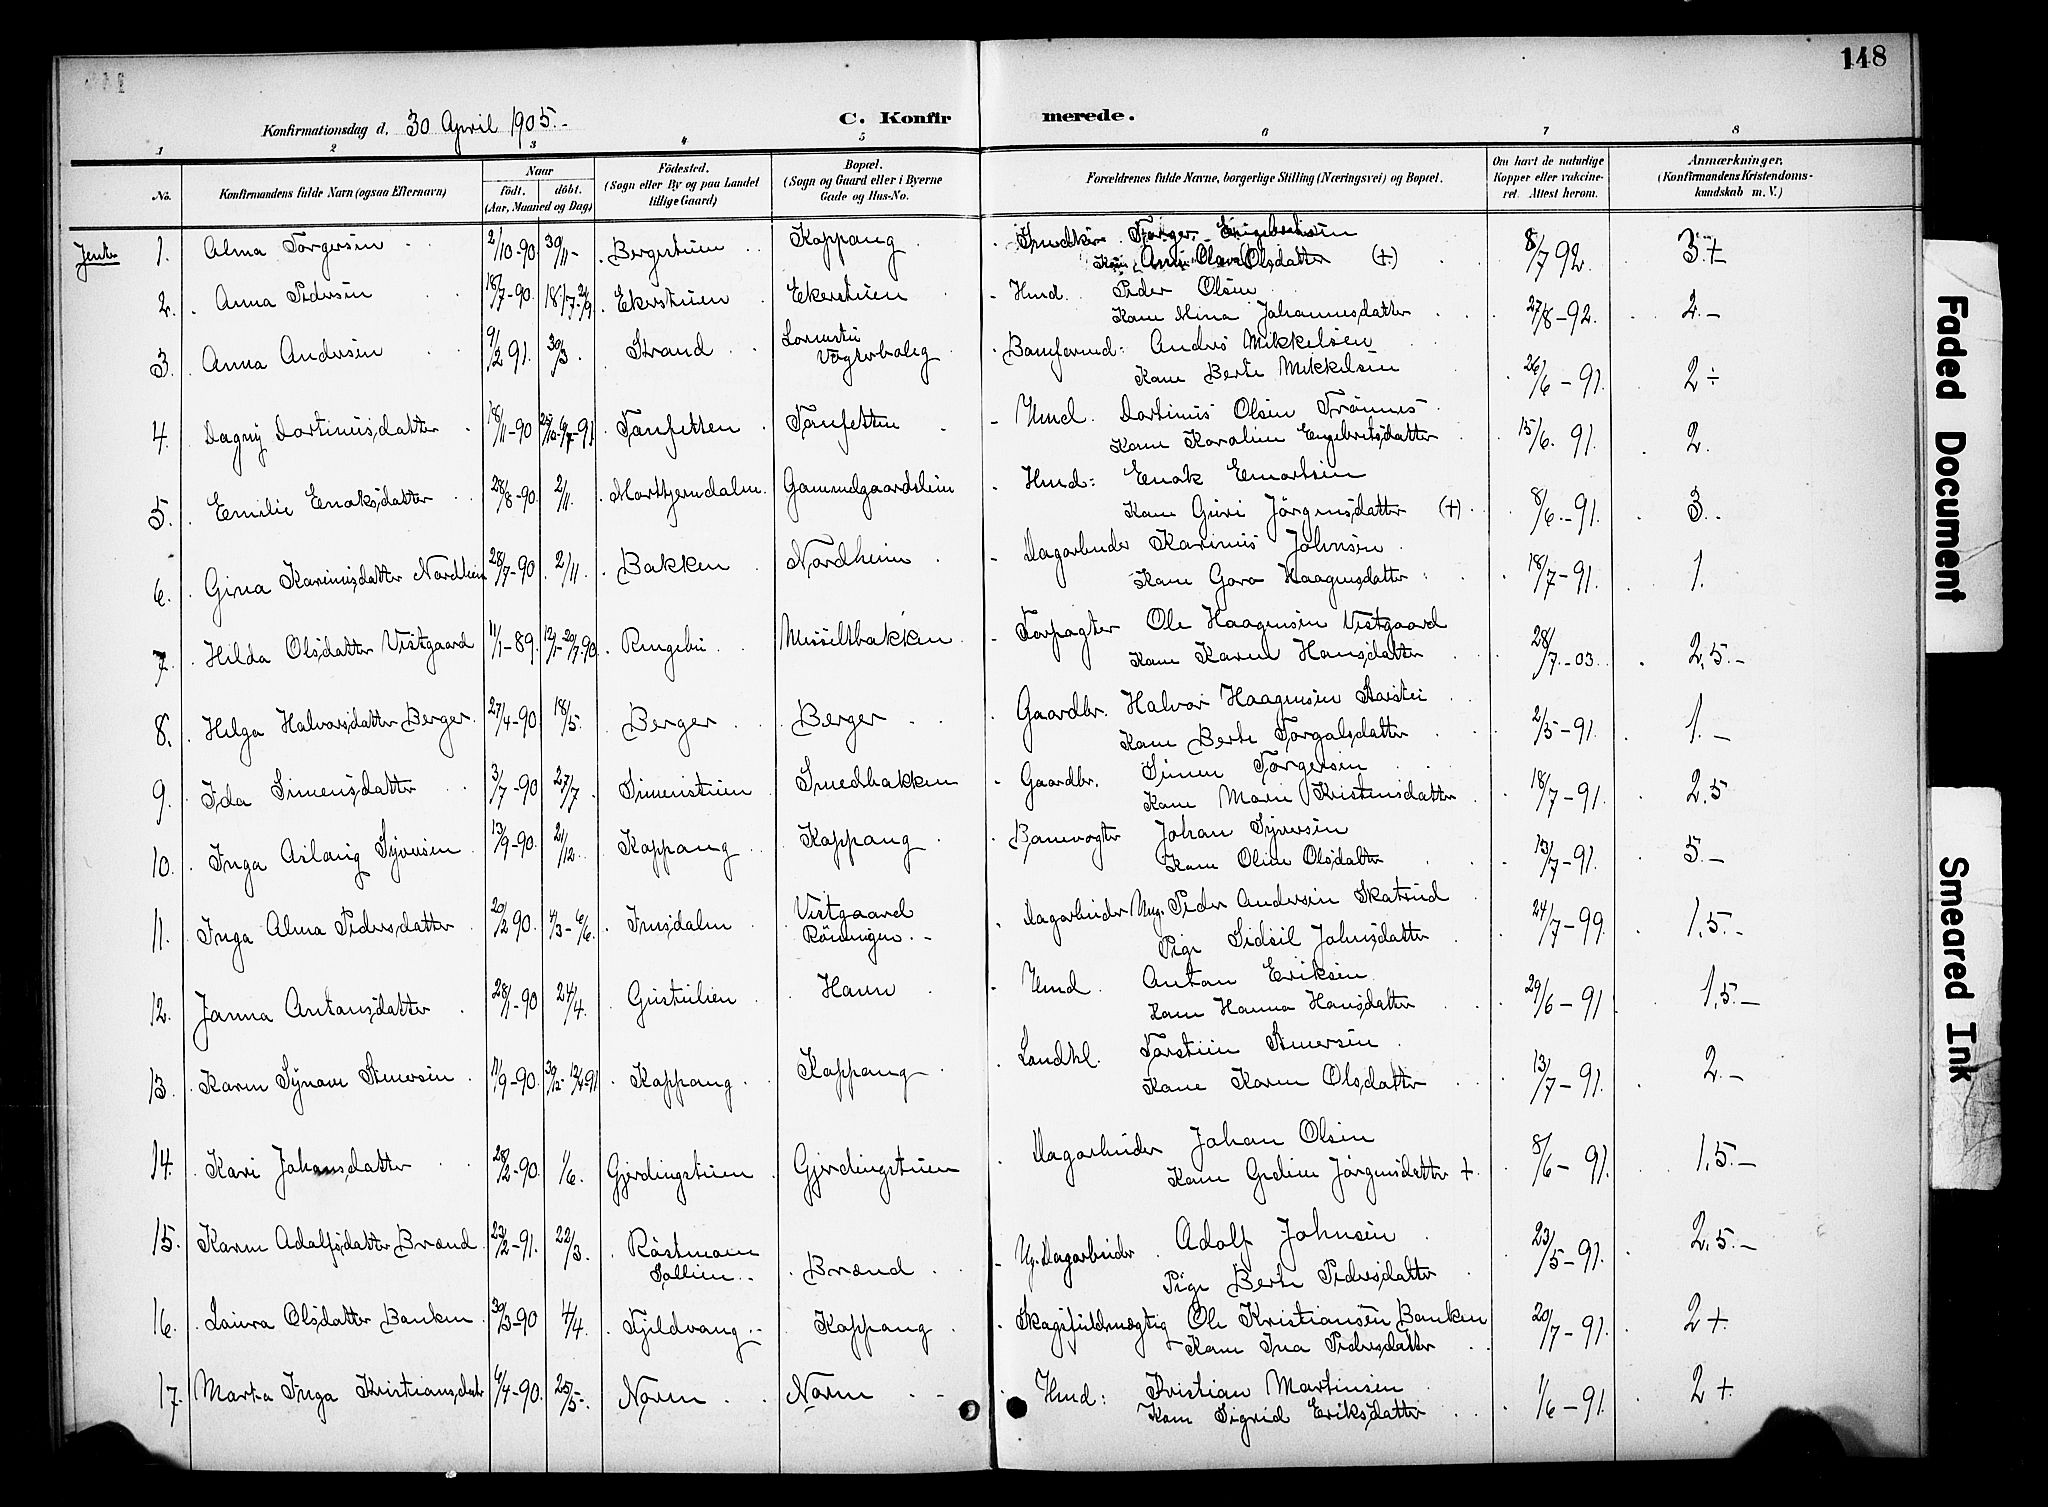 148
Konfirmationsdag d. 30 April 1905.-
C. Konfirmerede.
1 2 3 4 5 6 7 8
No. Konfirmandens fulde Navn (ogsaa Efternavn) Naar födt. döbt. (Aar, Maaned og Dag) Födested. (Sogn eller By og paa Landet tillige Gaard) Bopæl. (Sogn og Gaard eller i Byerne Gade og Hus-No. Forældrenes fulde Navne, borgerlige Stilling (Næringsvei) og Bopæl. Om havt de naturlige Kopper eller vakcineret. Attest herom. Anmærkninger, (Konfirmandens Kristendomskundskab m. V.)
Jenter 1. Alma Torgersen 2/10-90 30/11- Bergestuen Koppang Snedker Torger Engebretsen 8/7 92. 3.+
Kone Olsdatter (+)
2. Anna Pedersen 18/7-90. Ekerstuen Ekerstuen Hmd. Peder Olsen 27/8-92. 2.-
Kone Mina Johannesdatter
3. Anna Andersen 9/2 91. 30/3. Strand Vogterbolig Andres Mikkelsen 26/6-91. 2 ÷
Kone Berte Mikkelsen
4. Dagny Dortinusdatter 18/11-90 Tanfetten Tanfetten Hmd. Dortinus Olsen Trönnes 15/6. 91. 2.
Kone Karoline Engebretsdatter
5. Emilie Enoksdatter 28/8-90. 2/11. Gammelgaardsleien Hmd: Enok 8/6.-91. 3.
Kone Guri Jörgensdatter (+)
6. Gina Karinusdatter Nordheim 28/7-90 2/11. Bakken Nordheim Dagarbeider Karinus Johnsen 18/7-91. 1.
Kone Goro Haagensdatter
7. Hilda Olsdatter Vestgaard 11/1-89. Ringebu Messeltbakken Forpagter Ole Haagensen Vestgaard 28/7.-03. 2,5.-
Kone Karen Hansdatter
8. Helga Halvorsdatter Berger 27/4-90 18/5. Berger Berger Gaardbr. Halvor Haagensen 2/5-91. 1.-
Kone Berte Torgalsdatter
9. Ida Simensdatter 3/7-90 27/7 Simenstuen Smedbakken Gaardbr. Simen Torgersen 18/7-91. 2,5
Kone Marie Kristensdatter
10. Inga Aslaug Syversen 13/9-90. 21/12. Koppang Koppang Banevogter Johan Syversen 13/7-91. 5.-
Kone Oline Olsdatter
11. Inga Alma Pedersdatter 20/2 90. 4/3-6/6. Imsdalen Vestgaard Röiningen.- Dagarbeider Ung. Peder Andersen Skatrud 24/7-99. 1,5.-
Pige Sidsil Johnsdatter
12. Janna Antonsdatter 28/1-90 24/4. Gustulien Hmd Anton Eriksen 29/6-91 1,5.-
Kone Hanna Hansdatter
13. Karen Synöve 11/9-90. Koppang Koppang Landhl. Torstein 13/7-91. 2.-
Kone Karen Olsdatter
14. Kari Johansdatter 28/2-90. 1/6. Gjerdingstuen Gjerdingstuen Dagarbeider Johan Olsen 8/6-91. 1,5.-
Kone Gedine Jörgensdatter +
15. Karen Adolfsdatter Brænd 23/2-91. 22/3. Sollien.- Brænd U. Dagarbeider Adolf Johnsen 23/5-91. 2,5.-
Pige Berte Pedersdatter
16. Laura Olsdatter Banken 30/3-90 4/4. Fjeldvang.- Koppang Skogsfuldmægtig Ole Kristiansen Banken 20/7-91. 2+.
Kone Ina Pedersdatter
17. Marta Inga Kristiansdatr 6/4-90. 25/5-. Noren Noren Hmd: Kristian Martinsen 1/6-91. 2+.
Kone Sigrid Eriksdatter
Faded Document
Smeared Ink